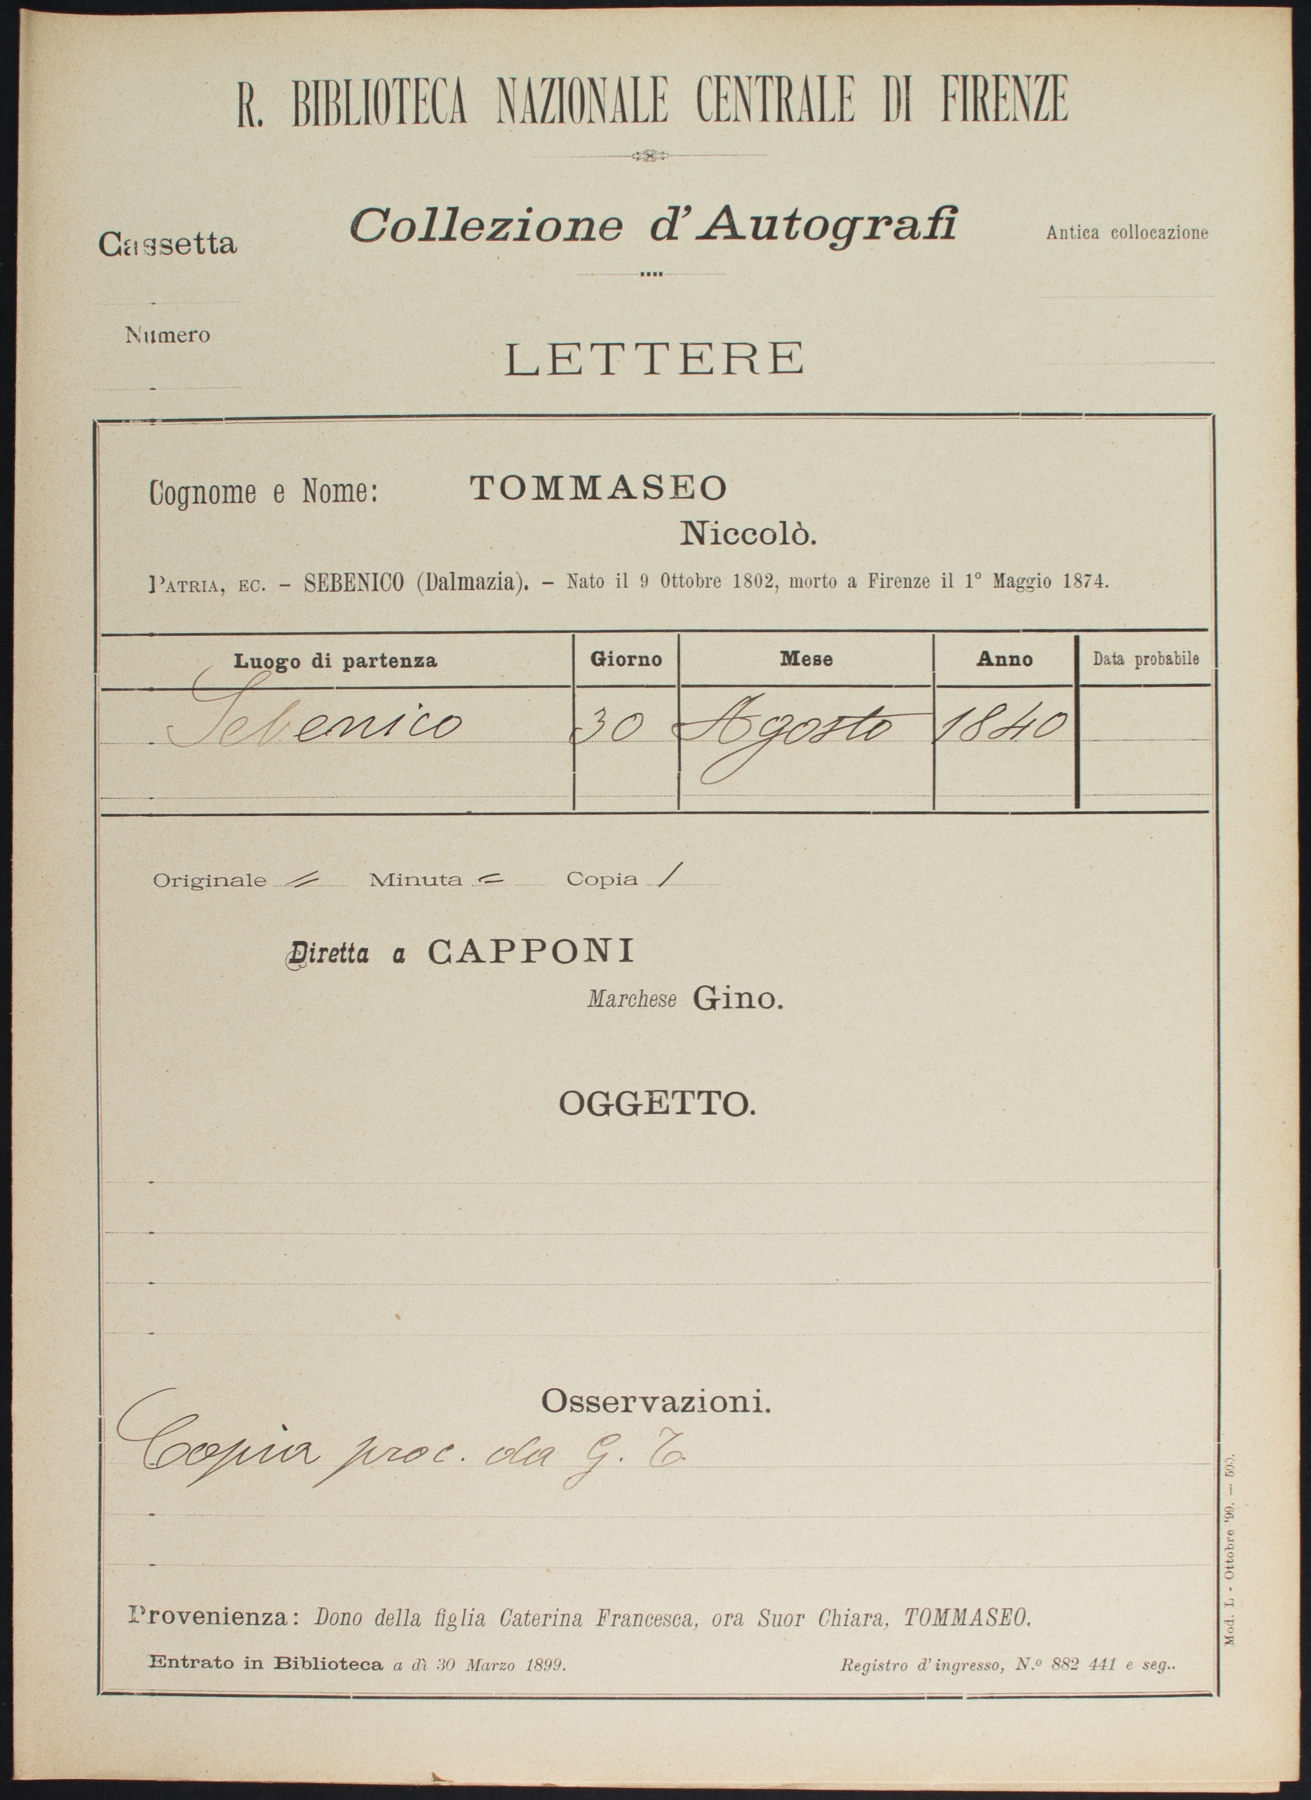 R. BIBLIOTECA NAZIONALE CENTRALE DI FIRENZE
Collezione d'Autografi
Cassetta
Antica collocazione
Numero
LETTERE
Cognome e Nome: TOMMASEO
Niccolò.
PATRIA, EC. – SEBENICO (Dalmazia). – Nato il 9 Ottobre 1802, morto a Firenze il 1° Maggio 1874.
Luogo di partenza Giorno Mese Anno Data probabile
Sebenico 30 Agosto 1840
Originale = Minuta = Copia /
Diretta a CAPPONI
Marchese Gino.
OGGETTO.
Osservazioni.
Copia proc. da G. T.
Provenienza: Dono della figlia Caterina Francesca, ora Suor Chiara, TOMMASEO.
Entrato in Biblioteca a dì 30 Marzo 1899. Registro d'ingresso, N.º 882 441 e seg..
Mod. L - Ottobre '99. — 500.